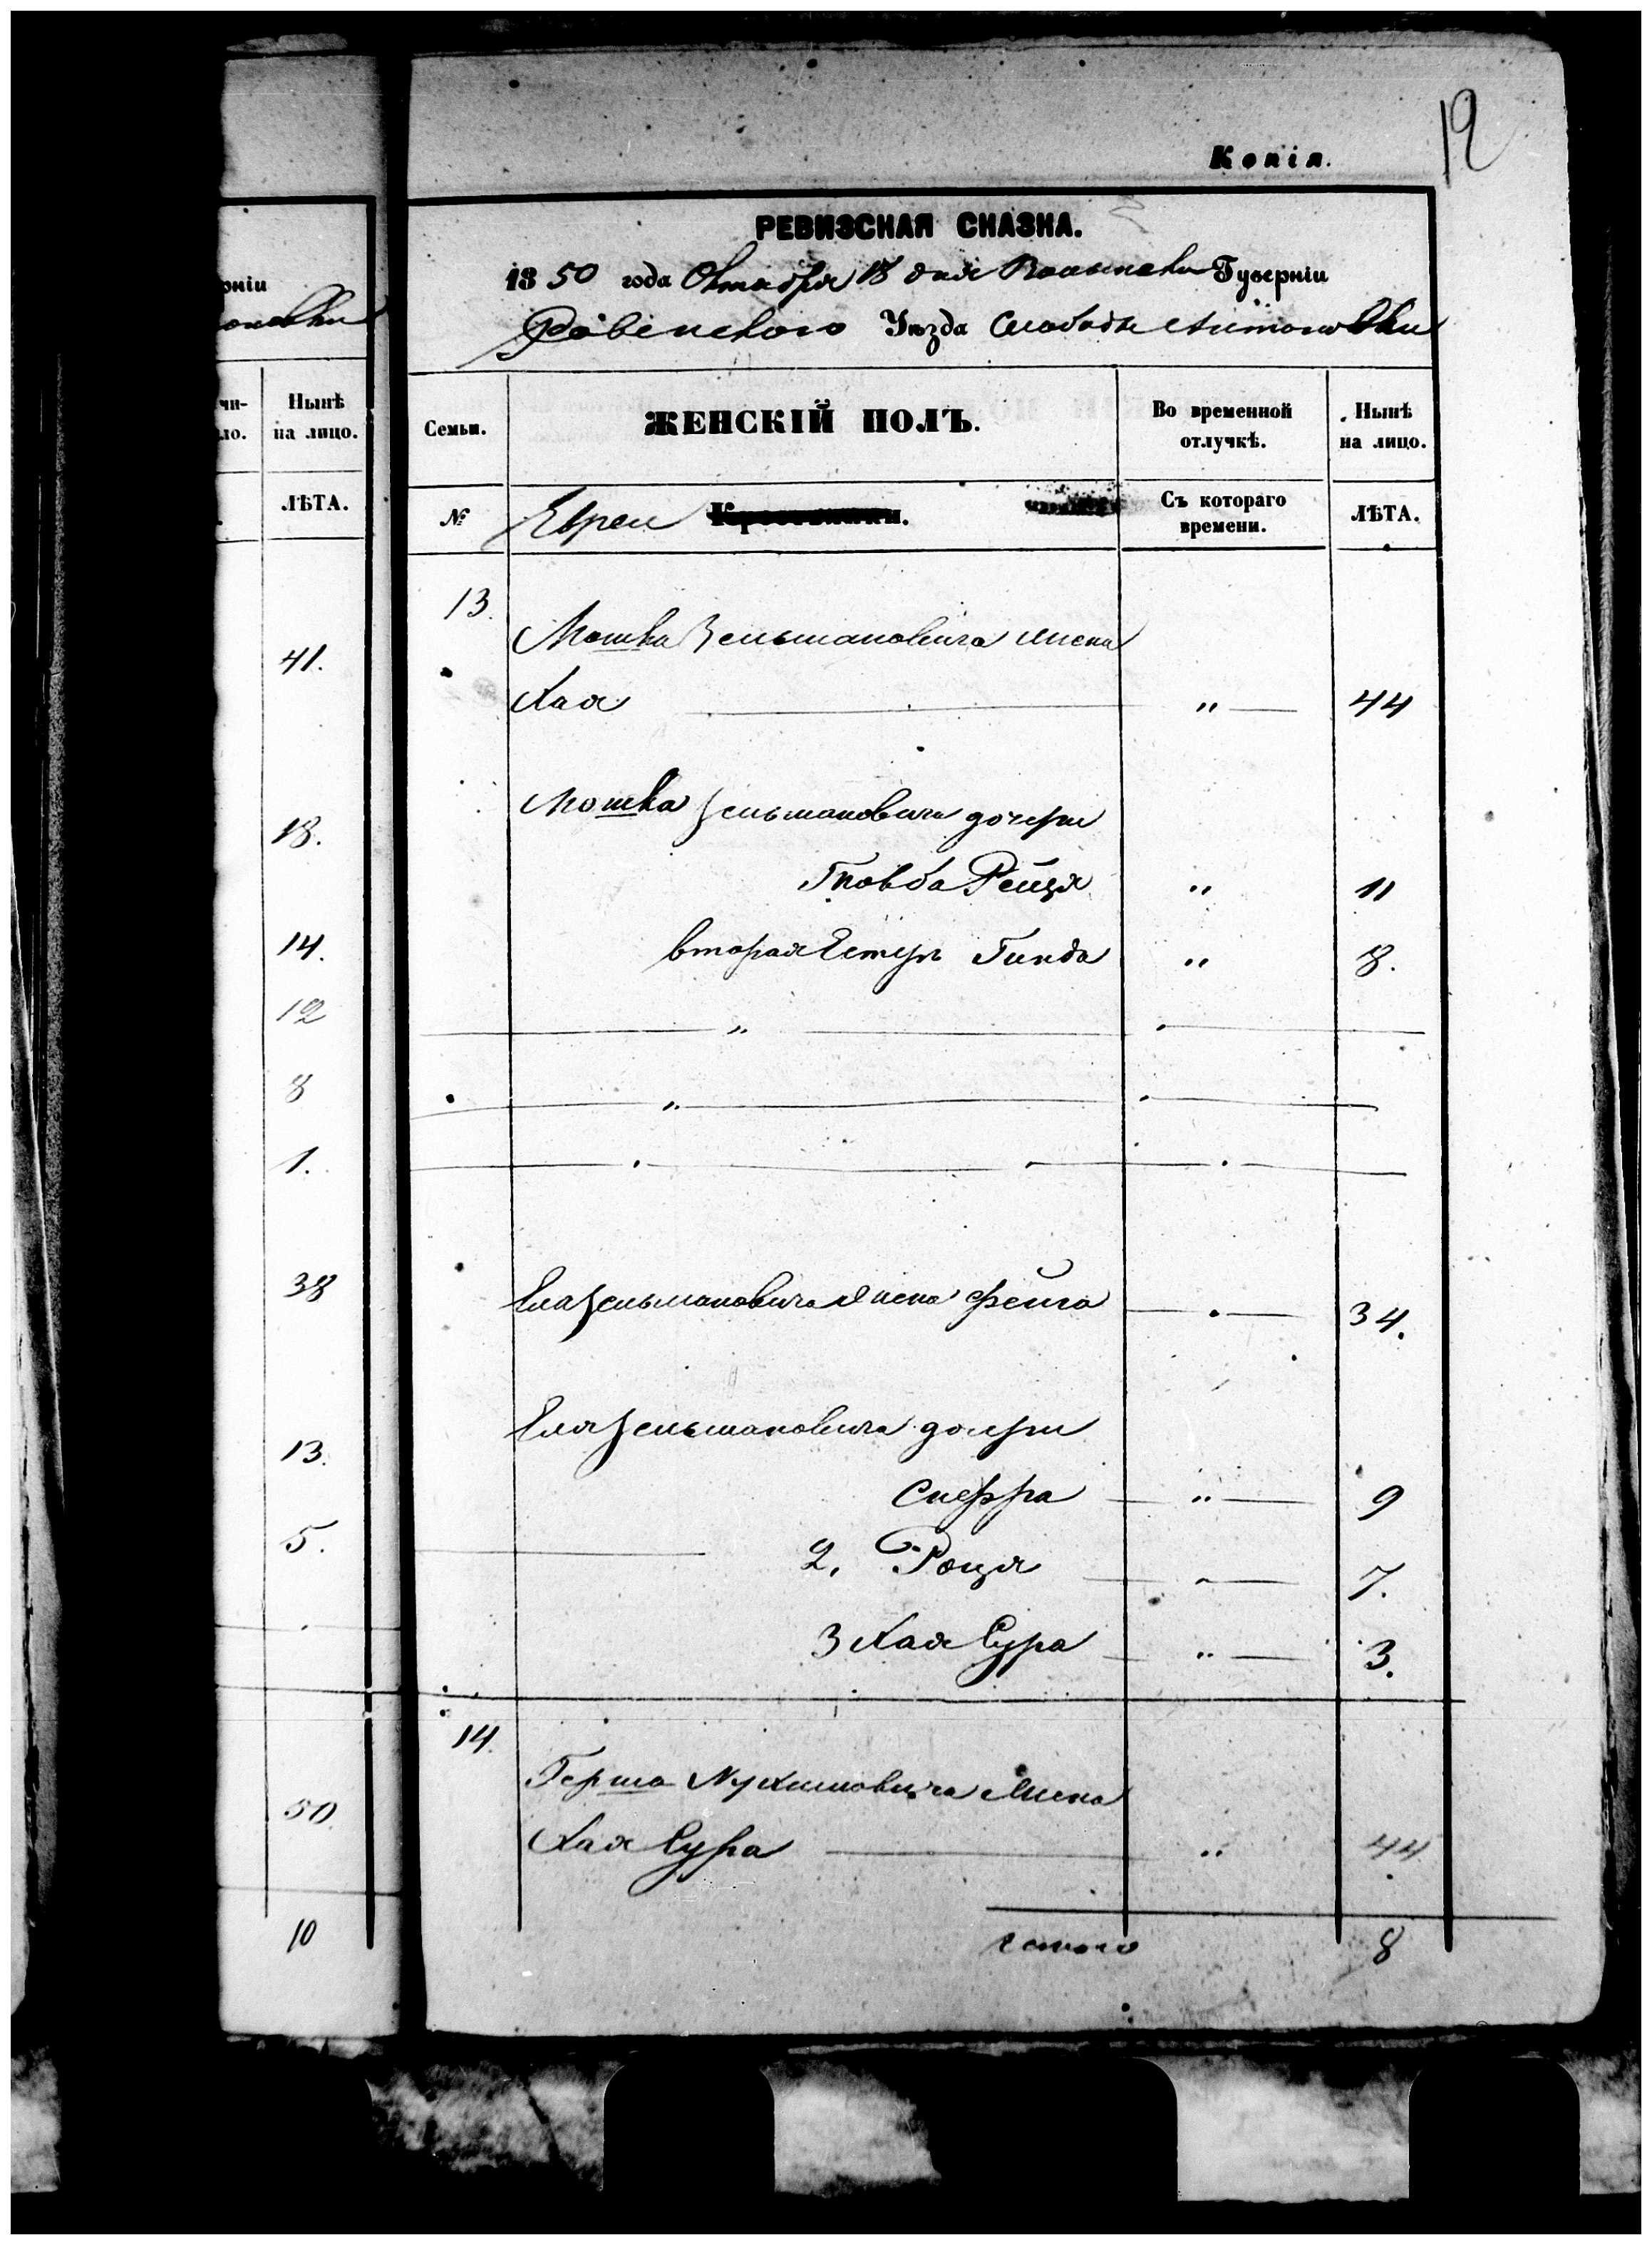 12
Копія.
РЕВИЗСКАЯ СКАЗКА.
1850 года Октября 18 дня Волынской Губерніи
Ровенского Уѣзда Слободы Антоновки
рніи
оновки
чи-
ло.
Нынѣ
на лицо.
ЛѢТА.
41.
18.
14.
12
8
1.
38
13.
5.
50
10
Семьи.
ЖЕНСКІЙ ПОЛЪ.
Во временной
отлучкѣ.
Нынѣ
на лицо.
№
Евреи
Съ котораго
времени.
ЛѢТА.
13.
Мошка Зельмановича жена
Хая " 44
Мошка Зельмановича дочери
Товба Рейзя " 11
вторая Естеръ Гинда " 8.
"
"
Еля Зельмановича жена Фейга 34.
Еля Зельмановича дочери
Сперра " 9
2. Роизя " 7.
3 Хая Сура " 3.
14.
Герша Нухимовича жена
Хая Сура " 44
Итого 8